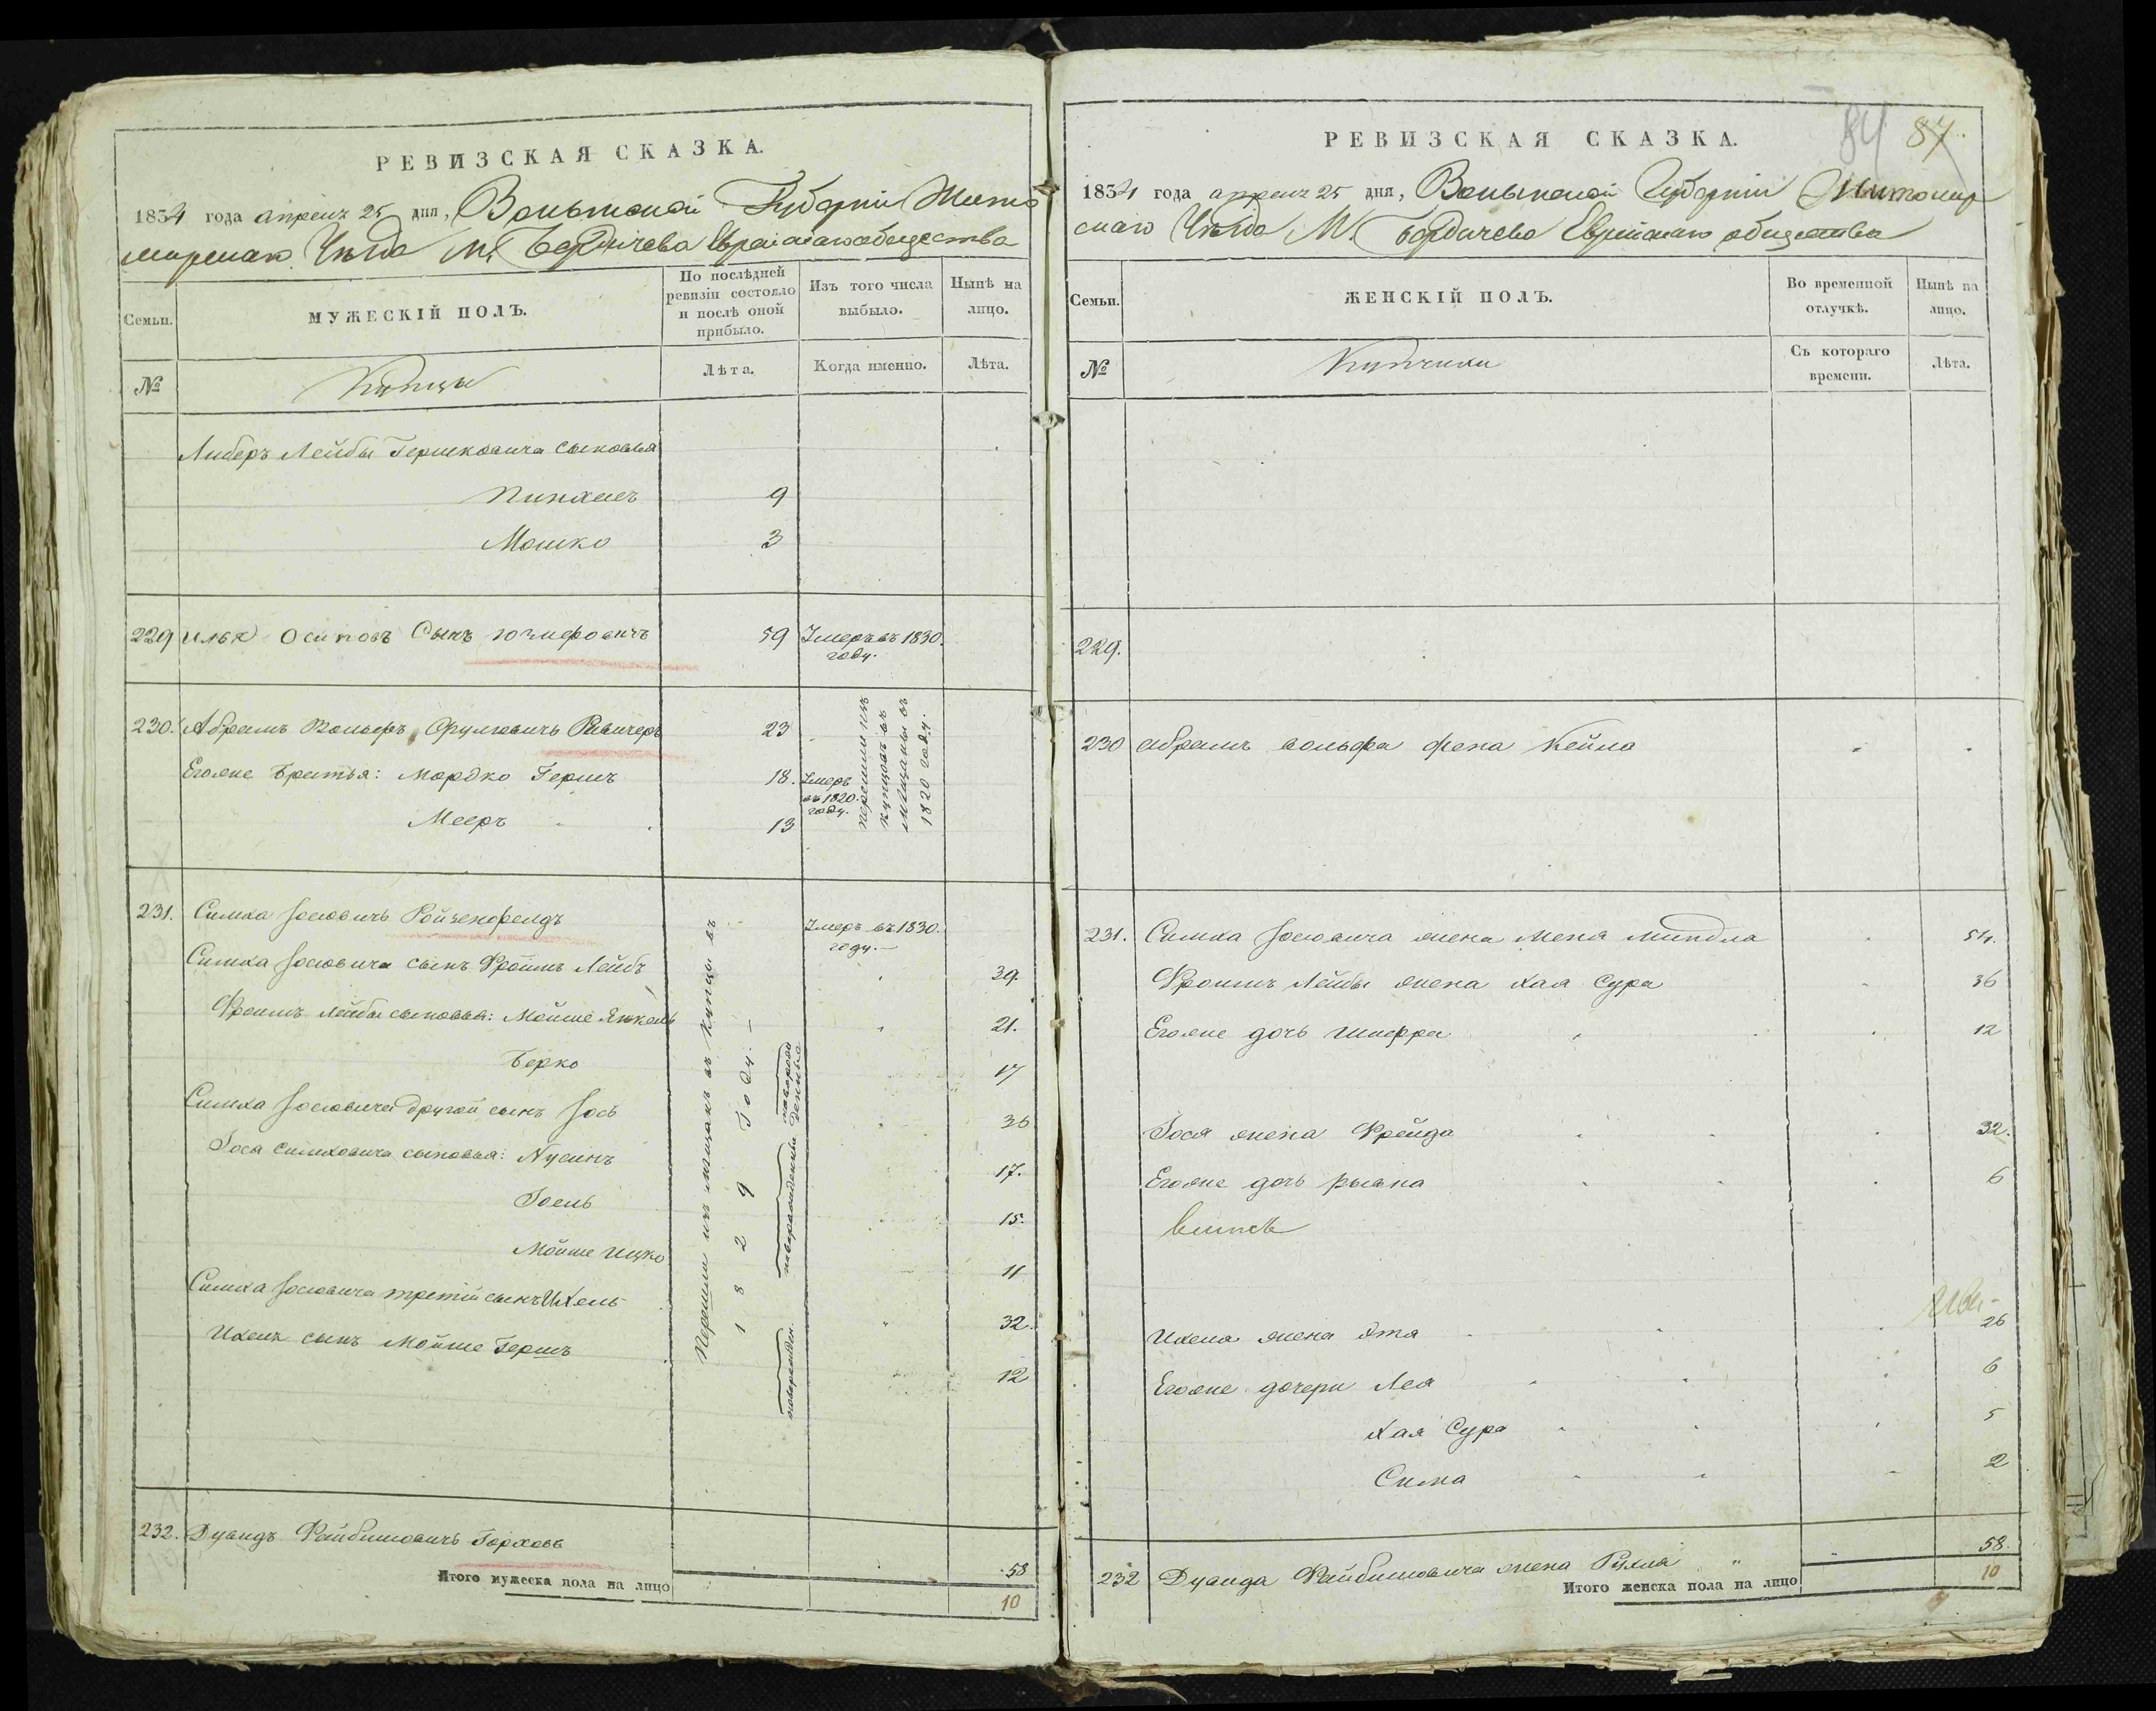 РЕВИЗСКАЯ СКАЗКА.
1834 года апреля 25 дня, Волынской Губерніи Жито
мирскаго Уѣзда М. Бердичева Еврейскаго общества
Семьи.
МУЖЕСКІЙ ПОЛЪ.
По послѣдней ревизіи состояло и послѣ оной прибыло.
Изъ того числа выбыло.
Нынѣ на лицо.
№
Купцы
Лѣта.
Когда именно.
Лѣта.
Либеръ Лейбы Гершковича сыновья
Пинхасъ 9
Мошко 3
229 Илья Осиповъ Сынъ 59 Умеръ въ 1830.
году.
230. Абрамъ Вольфъ Сруловичъ 23
Егоже братья: Мордко Гершъ 18. Умеръ
въ 1820.
году.
Мееръ 13
перешли изъ
купцовъ въ
мѣщаны въ
1820 году.
231. Симха Іосіовичъ Ройзенфелдъ Умеръ въ 1830.
году.
Симха Іосіовича сынъ Фроимъ Лейбъ 39.
Фроимъ Лейбы сыновья: Мойше Янкель 21.
Берко 17
Симха Іосіовича другой сынъ Іось 36
Іося Симховича сыновья: Нусинъ 17.
Іоель 15.
Мойше Ицко 11
Симха Іосіовича третій сынъ Ихель 32.
Ихеля сынъ Мойше Гершъ 12
Перешли изъ мѣщанъ въ купцы въ
1829 Году.
новорож
денны
новорожденны
новорожден.
232. Дувидъ Файбишовичъ Горховъ 58
Итого мужеска пола на лицо 10
84 87.
РЕВИЗСКАЯ СКАЗКА.
1834 года апреля 25 дня, Волынской Губерніи Житомир
скаго Уѣзда М. Бердичева Еврейскаго общества
Семьи.
ЖЕНСКІЙ ПОЛЪ.
Во временной отлучкѣ.
Нынѣ на лицо.
№
Купчихи
Съ котораго времени.
Лѣта.
229.
230 Абрамъ Вольфа жена Кейла
231. Симха Іосіовича жена Меня Миндля 54.
Фроимъ Лейбы жена Хая Сура 36
Егоже дочь Шифра 12
Іося жена Фрейда 32.
Егоже дочь Рывка 6
Ихеля жена Эта 26
Егоже дочери Лея 6
Хая Сура 5
Сима 2
232 Дувида Файбишовича жена Рухля 58.
Итого женска пола на лицо 10